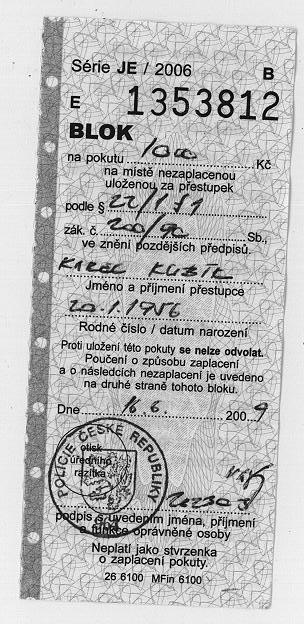 Série JE / 2006 B
E 1353812
BLOK
na pokutu 1000 Kč
na místě nezaplacenou
uloženou za přestupek
podle §
zák. č. 200/90 Sb.,
ve znění pozdějších předpisů.
KAREL
Jméno a příjmení přestupce
20.1.1956
Rodné číslo / datum narození
Proti uložení této pokuty se nelze odvolat.
Poučení o způsobu zaplacení
a o následcích nezaplacení je uvedeno
na druhé straně tohoto bloku.
Dne 16.6. 2009
POLICIE ČESKÉ REPUBLIKY
otisk
úředního
razítka
podpis s uvedením jména, příjmení
a funkce oprávněné osoby
Neplatí jako stvrzenka
o zaplacení pokuty.
26 6100 MFin 6100